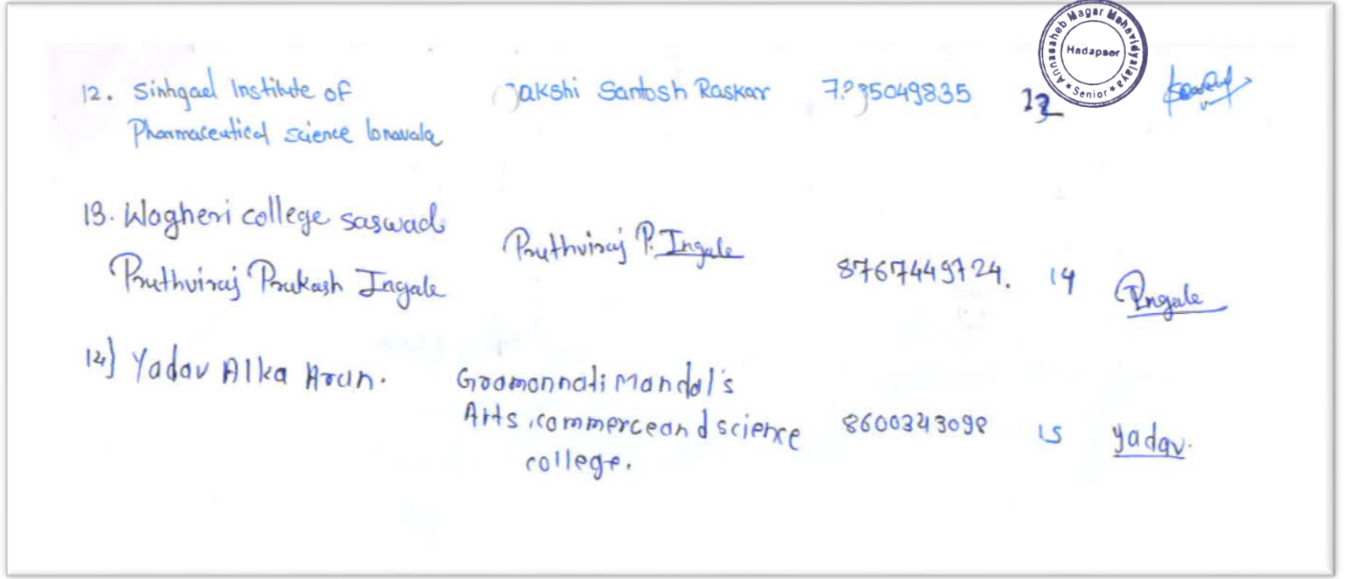 Annasaheb Magar Mahavidyalaya
Hadapsar
Senior
12. Sinhgad Institute of
Pharmaceutical science lonavala
Santosh Raskar
13. Wagheri college saswad
Pruthviraj Prakash Ingale
Pruthviraj P. Ingale
8767449724. 14 Ingale
14) Yadav Alka Arun.
Gramonnati Mandal's
Arts, commerce and science
college.
8600343098 15 yadav.